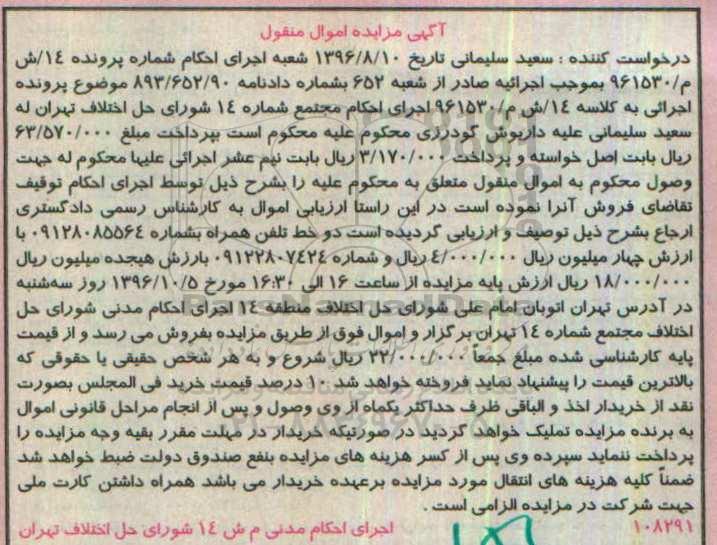 آگهی مزایده اموال منقول
درخواست کننده : سعید سلیمانی تاریخ ۱۳۹۶/۸/۱۰ شعبه اجرای احکام شماره پرونده ۱۴/ش
م/۹۶۱۵۳۰ بموجب اجرائیه صادر از شعبه ۶۵۲ بشماره دادنامه ۸۹۳/۶۵۲/۹۰ موضوع پرونده
اجرائی به کلاسه ۱۴/ش م/۹۶۱۵۳۰ اجرای احکام مجتمع شماره ۱۴ شورای حل اختلاف تهران له
سعید سلیمانی علیه داریوش گودرزی محکوم علیه محکوم است بپرداخت مبلغ ۶۳/۵۷۰/۰۰۰
ریال بابت اصل خواسته و پرداخت ۳/۱۷۰/۰۰۰ ریال بابت نیم عشر اجرائی علیها محکوم له جهت
وصول محکوم به اموال منقول متعلق به محکوم علیه را بشرح ذیل توسط اجرای احکام توقیف
تقاضای فروش آنرا نموده است در این راستا ارزیابی اموال به کارشناس رسمی دادگستری
ارجاع بشرح ذیل توصیف و ارزیابی گردیده است دو خط تلفن همراه بشماره ۰۹۱۲۸۰۸۵۵۶۴ با
ارزش چهار میلیون ریال ۴/۰۰۰/۰۰۰ ریال و شماره ۰۹۱۲۲۸۰۷۴۲۴ بارزش هیجده میلیون ریال
۱۸/۰۰۰/۰۰۰ ریال ارزش پایه مزایده از ساعت ۱۶ الی ۱۶:۳۰ مورخ ۱۳۹۶/۱۰/۵ روز سه‌شنبه
در آدرس تهران اتوبان امام علی شورای حل اختلاف منطقه ۱۴ اجرای احکام مدنی شورای حل
اختلاف مجتمع شماره ۱۴ تهران برگزار و اموال فوق از طریق مزایده بفروش می رسد و از قیمت
پایه کارشناسی شده مبلغ جمعاً ۲۲/۰۰۰/۰۰۰ ریال شروع و به هر شخص حقیقی یا حقوقی که
بالاترین قیمت را پیشنهاد نماید فروخته خواهد شد ۱۰ درصد قیمت خرید فی المجلس بصورت
نقد از خریدار اخذ و الباقی ظرف حداکثر یکماه از وی وصول و پس از انجام مراحل قانونی اموال
به برنده مزایده تملیک خواهد گردید در صورتیکه خریدار در مهلت مقرر بقیه وجه مزایده را
پرداخت ننماید سپرده وی پس از کسر هزینه های مزایده بنفع صندوق دولت ضبط خواهد شد
ضمناً کلیه هزینه های انتقال مورد مزایده برعهده خریدار می باشد همراه داشتن کارت ملی
جهت شرکت در مزایده الزامی است .
۱۰۸۲۹۱ اجرای احکام مدنی م ش ۱۴ شورای حل اختلاف تهران